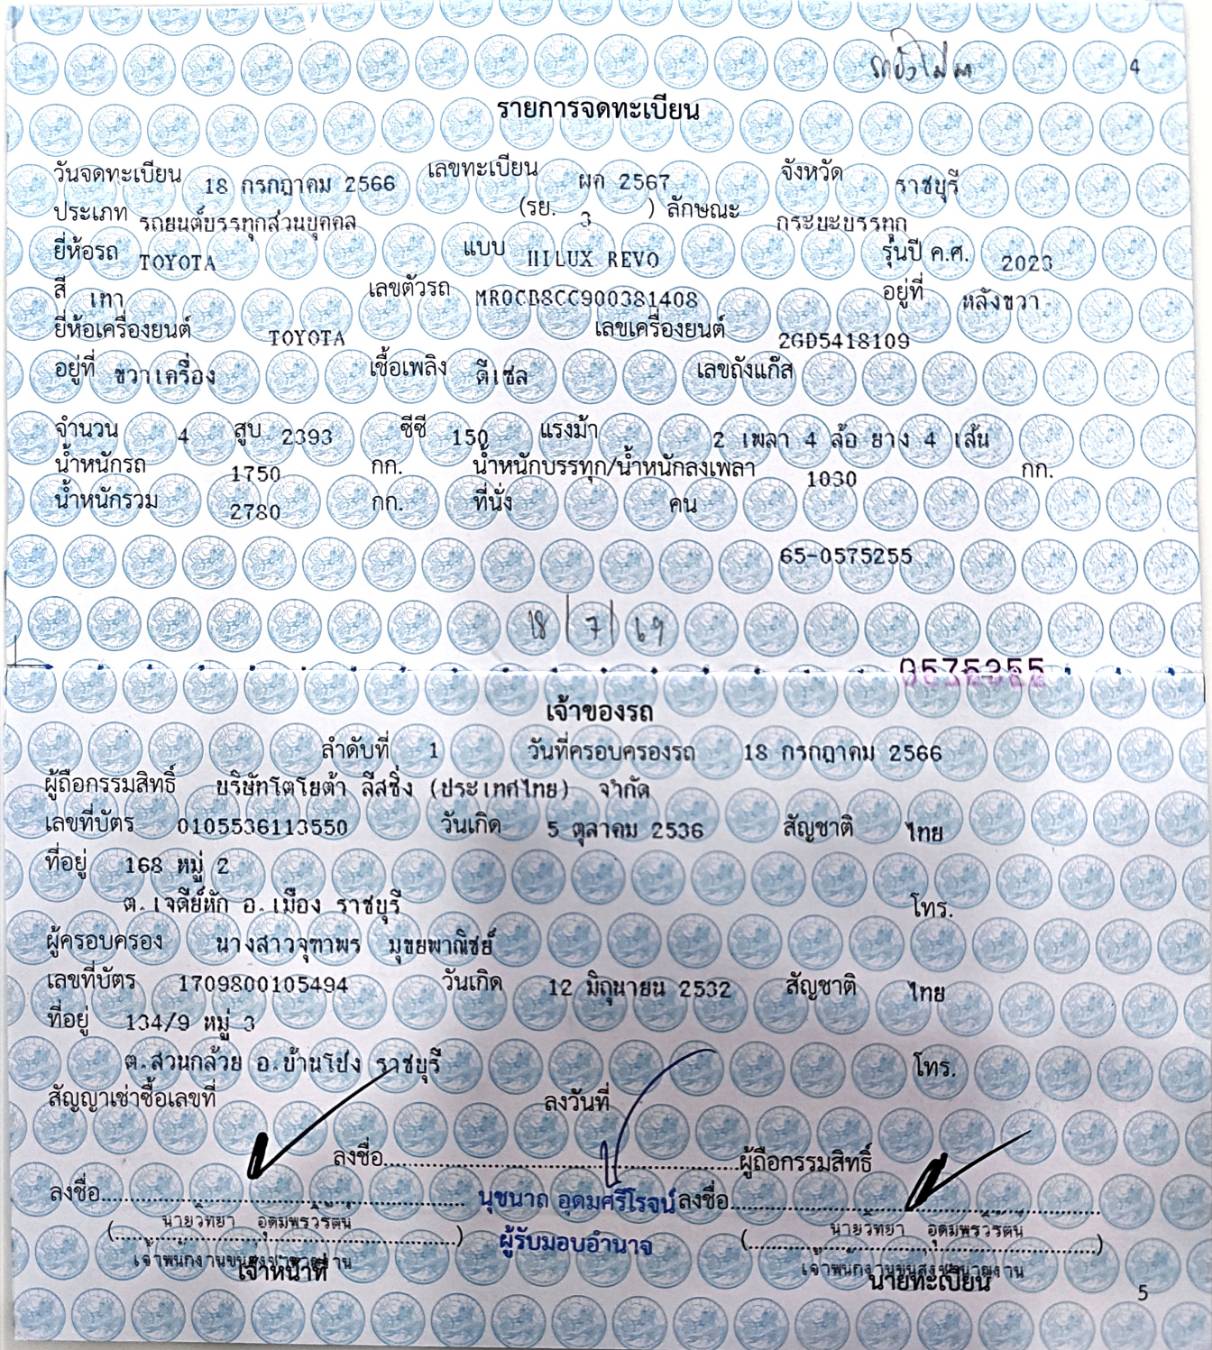 4
รายการจดทะเบียน
วันจดทะเบียน 18 กรกฎาคม 2566 เลขทะเบียน ผค 2567 จังหวัด ราชบุรี
ประเภท รถยนต์บรรทุกส่วนบุคคล (รย. 3 ) ลักษณะ กระบะบรรทุก
ยี่ห้อรถ TOYOTA แบบ HILUX REVO รุ่นปี ค.ศ. 2023
สี เทา เลขตัวรถ MR0CB8CC900381408 อยู่ที่ หลังขวา
ยี่ห้อเครื่องยนต์ TOYOTA เลขเครื่องยนต์ 2GD5418109
อยู่ที่ ขวาเครื่อง เชื้อเพลิง ดีเซล เลขถังแก๊ส
จำนวน 4 สูบ 2393 ซีซี 150 แรงม้า 2 เพลา 4 ล้อ ยาง 4 เส้น
น้ำหนักรถ 1750 กก. น้ำหนักบรรทุก/น้ำหนักลงเพลา 1030 กก.
น้ำหนักรวม 2780 กก. ที่นั่ง คน
65-0575255
18/7/69
0575255
เจ้าของรถ
ลำดับที่ 1 วันที่ครอบครองรถ 18 กรกฎาคม 2566
ผู้ถือกรรมสิทธิ์ บริษัทโตโยต้า ลีสซิ่ง (ประเทศไทย) จำกัด
เลขที่บัตร 0105536113550 วันเกิด 5 ตุลาคม 2536 สัญชาติ ไทย
ที่อยู่ 168 หมู่ 2
ต.เจดีย์หัก อ.เมือง ราชบุรี โทร.
ผู้ครอบครอง นางสาวจุฑาพร มุขยพาณิชย์
เลขที่บัตร 1709800105494 วันเกิด 12 มิถุนายน 2532 สัญชาติ ไทย
ที่อยู่ 134/9 หมู่ 3
ต.สวนกล้วย อ.บ้านโป่ง ราชบุรี โทร.
สัญญาเช่าซื้อเลขที่ ลงวันที่
ลงชื่อ ผู้ถือกรรมสิทธิ์
ลงชื่อ นุชนาถ อุดมศรีโรจน์ ลงชื่อ
(นายวิทยา อุดมพรวิรัตน์) ผู้รับมอบอำนาจ (นายวิทยา อุดมพรวิรัตน์)
เจ้าพนักงานขนส่งชำนาญงาน เจ้าพนักงานขนส่งชำนาญงาน
เจ้าหน้าที่ นายทะเบียน
5